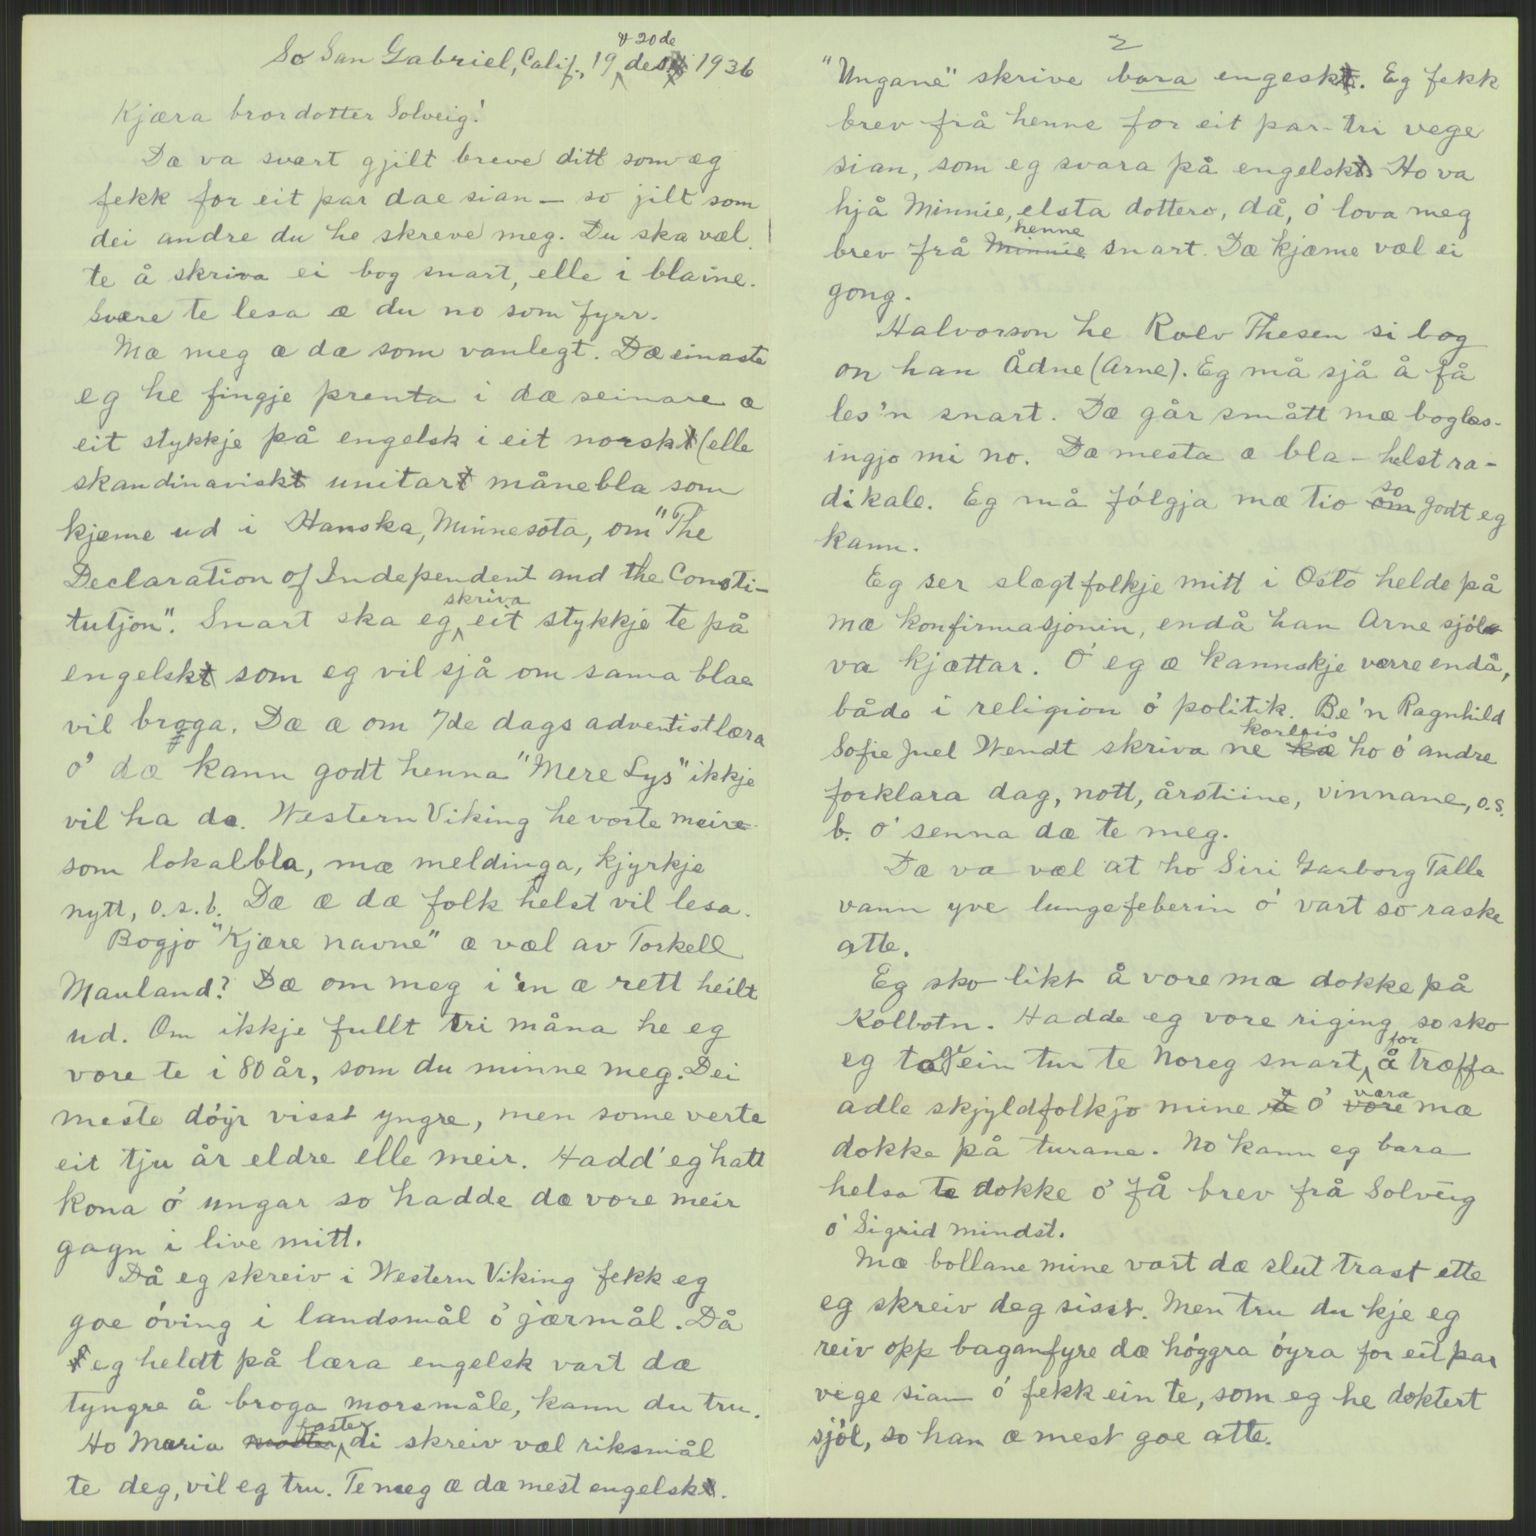 So San Gabriel, Calif., 19 & 20de des. 1936
Kjæra brordotter Solveig!
Dæ va svært gjilt breve ditt som eg
fekk for eit par dae sian — so jilt som
dei andre du he skreve meg. Du ska væl
te å skriva ei bog snart, elle i blaine.
Svære te lesa æ du no som fyrr.
Mæ meg æ dæ som vanlegt. Dæ einaste
eg he fingje prenta i dæ seinare æ
eit stykkje på engelsk i eit norsk (elle
skandinavisk unitar månebla som
kjæme ud i Hanska, Minnesota, om "The
Declaration of Independent and the Consti-
tutjon". Snart ska eg skriva eit stykkje te på
engelsk som eg vil sjå om sama blae
vil broga. Dæ æ om 7de dags adventistlæra
ó dæ kann godt henna "Mere Lys" ikkje
vil ha dæ. Western Viking he vorte meire
som lokalbla, mæ meldinga, kjyrkje
nytt, o.s.b. Dæ æ dæ folk helst vil lesa.
Bogjo "Kjære navne" æ væl av Torkell
Mauland? Dæ om meg i 'n æ rett heilt
ud. Om ikkje fullt tri måna he eg
vore te i 80 år, som du minne meg. Dei
meste dóyr visst yngre, men some verte
eit tju år eldre elle meir. Hadd' eg hatt
kona ó ungar so hadde dæ vore meir
gagn i live mitt.
Då eg skreiv i Western Viking fekk eg
goe óving i landsmål ó jærmål. Då
eg heldt på læra engelsk vart dæ
tyngre å broga morsmåle, kann du tru.
Ho Maria faster di skreiv væl riksmål
te deg, vil eg tru. Te meg æ dæ mest engelsk.
2
"Ungane" skrive bara engesk. Eg fekk
brev frå henne for eit par-tri vege
sian, som eg svara på engelsk. Ho va
hjå Minnie, elsta dottero, då, ó lova meg
brev frå Minnie henne snart. Dæ kjæme væl ei
gong.
Halvorson he Rolv Thesen si bog
on han Ådne (Arne). Eg må sjå å få
les'n snart. Dæ går smått mæ boglæs-
ingjo mi no. Dæ mesta æ bla — helst ra-
dikale. Eg må fólgja mæ tio om so godt eg
kann.
Eg ser slægtfolkje mitt i Oslo helde på
mæ konfirmasjonin, endå han Arne sjól
va kjættar. Ó eg æ kannskje verre endå,
både i religion ó politik. Be'n Ragnhild
Sofie Juel Wendt skriva ne korleis ho ó andre
forklara dag, nott, årstiine, vinnane, o.s.
b. ó senna dæ te meg.
Dæ va væl at ho Siri Gaaborg Talle
vann yve lungefeberin ó vart so raske
atte.
Eg sko likt å vore mæ dokke på
Kolbotn. Hadde eg vore riging so sko
eg tage ein tur te Noreg snart, for å træffa
adle skjyldfolkjo mine ó vore væra mæ
dokke på turane. No kann eg bara
helsa te dokke ó få brev frå Solveig
ó Sigrid mindst.
Mæ bollane mine vart dæ slut trast ette
eg skreiv deg sisst. Men tru du kje eg
reiv opp baganfyre dæ hóggra óyra for eit par
vege sian ó fekk ein te, som eg he doktert
sjól, so han æ mest goe atte.